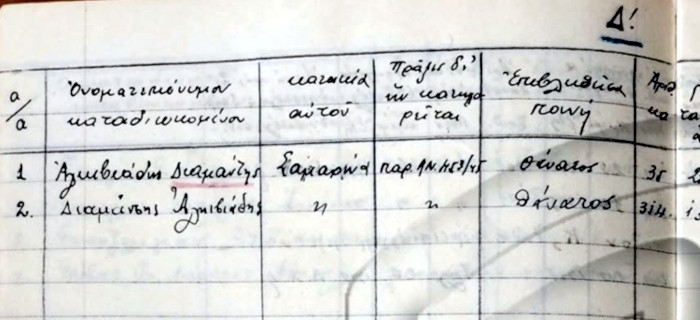 Δ!
α/α Ὀνοματεπώνυμον καταδιωκομένου κατοικία αὐτοῦ Πρᾶξις δι' ἣν κατηγορεῖται Ἐπιβληθεῖσα ποινή Ἀριθ.
1 Ἀλκιβιάδης Διαμάντης Σαμαρίνα παρ. Α.Ν. 453/45 θάνατος 35
2. Διαμάντης Ἀλκιβιάδης " " θάνατος 314.